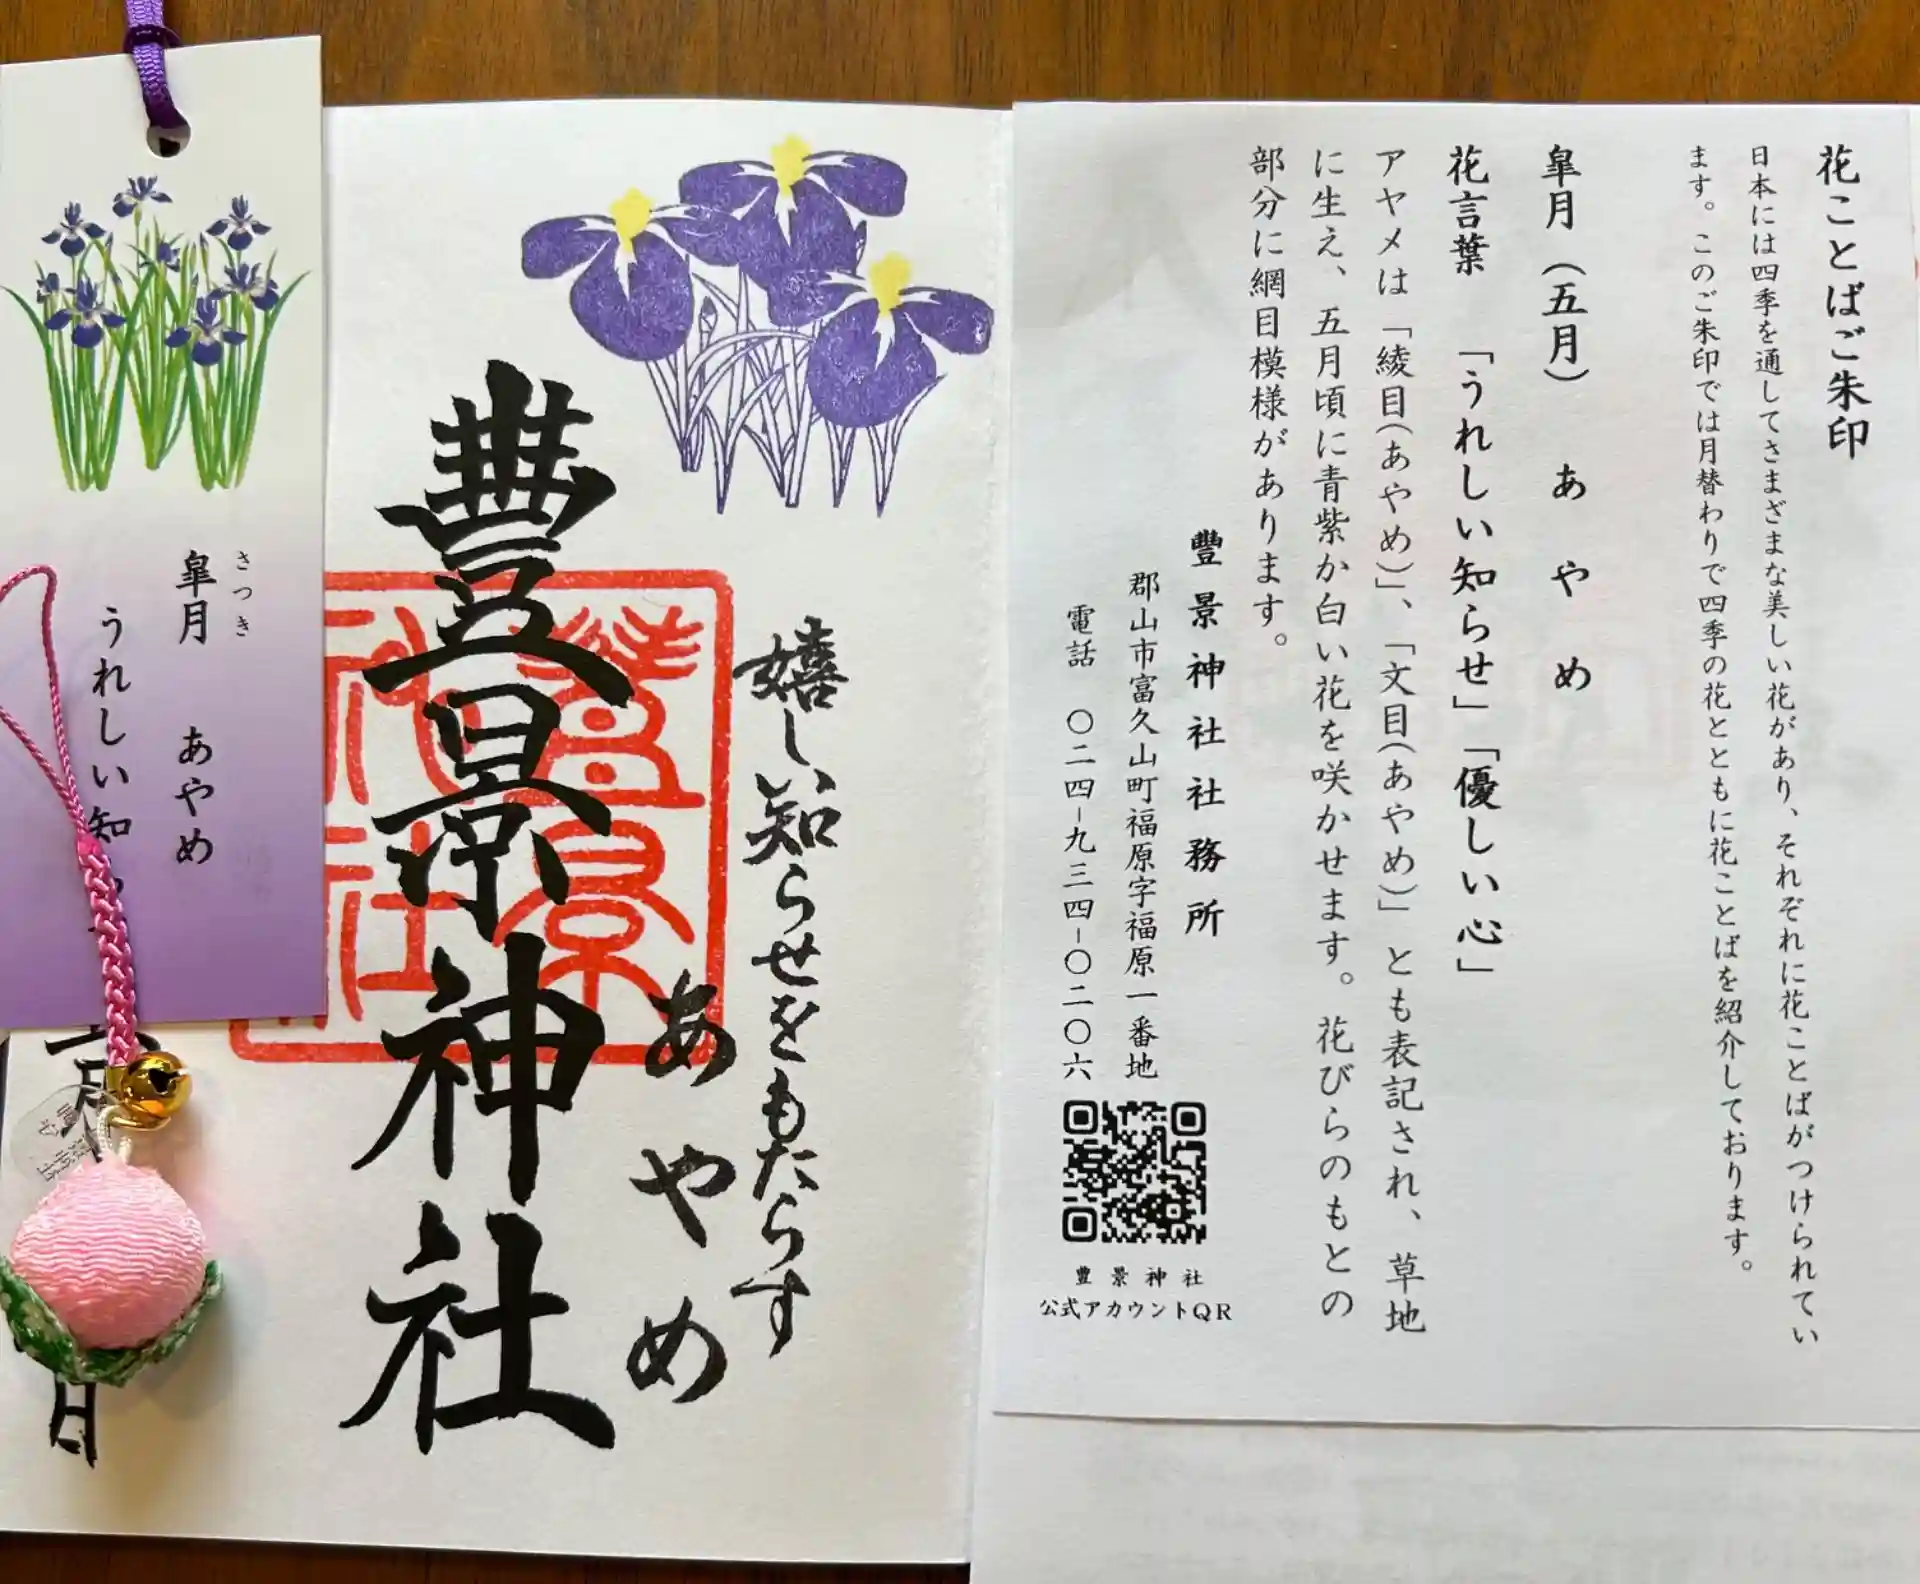 花ことばご朱印
日本には四季を通してさまざまな美しい花があり、それぞれに花ことばがつけられてい
ます。このご朱印では月替わりで四季の花とともに花ことばを紹介しております。
皐月（五月）　あやめ
花言葉　「うれしい知らせ」「優しい心」
アヤメは「綾目(あやめ)」、「文目(あやめ)」とも表記され、草地
に生え、五月頃に青紫か白い花を咲かせます。花びらのもとの
部分に網目模様があります。
豊景神社社務所
郡山市富久山町福原字福原一番地
電話　〇二四-九三四-〇二〇六
豊景神社
公式アカウントQR
嬉しい知らせをもたらす
あやめ
豊景神社
豊景
神社
さつき
皐月　あやめ
うれしい知
日